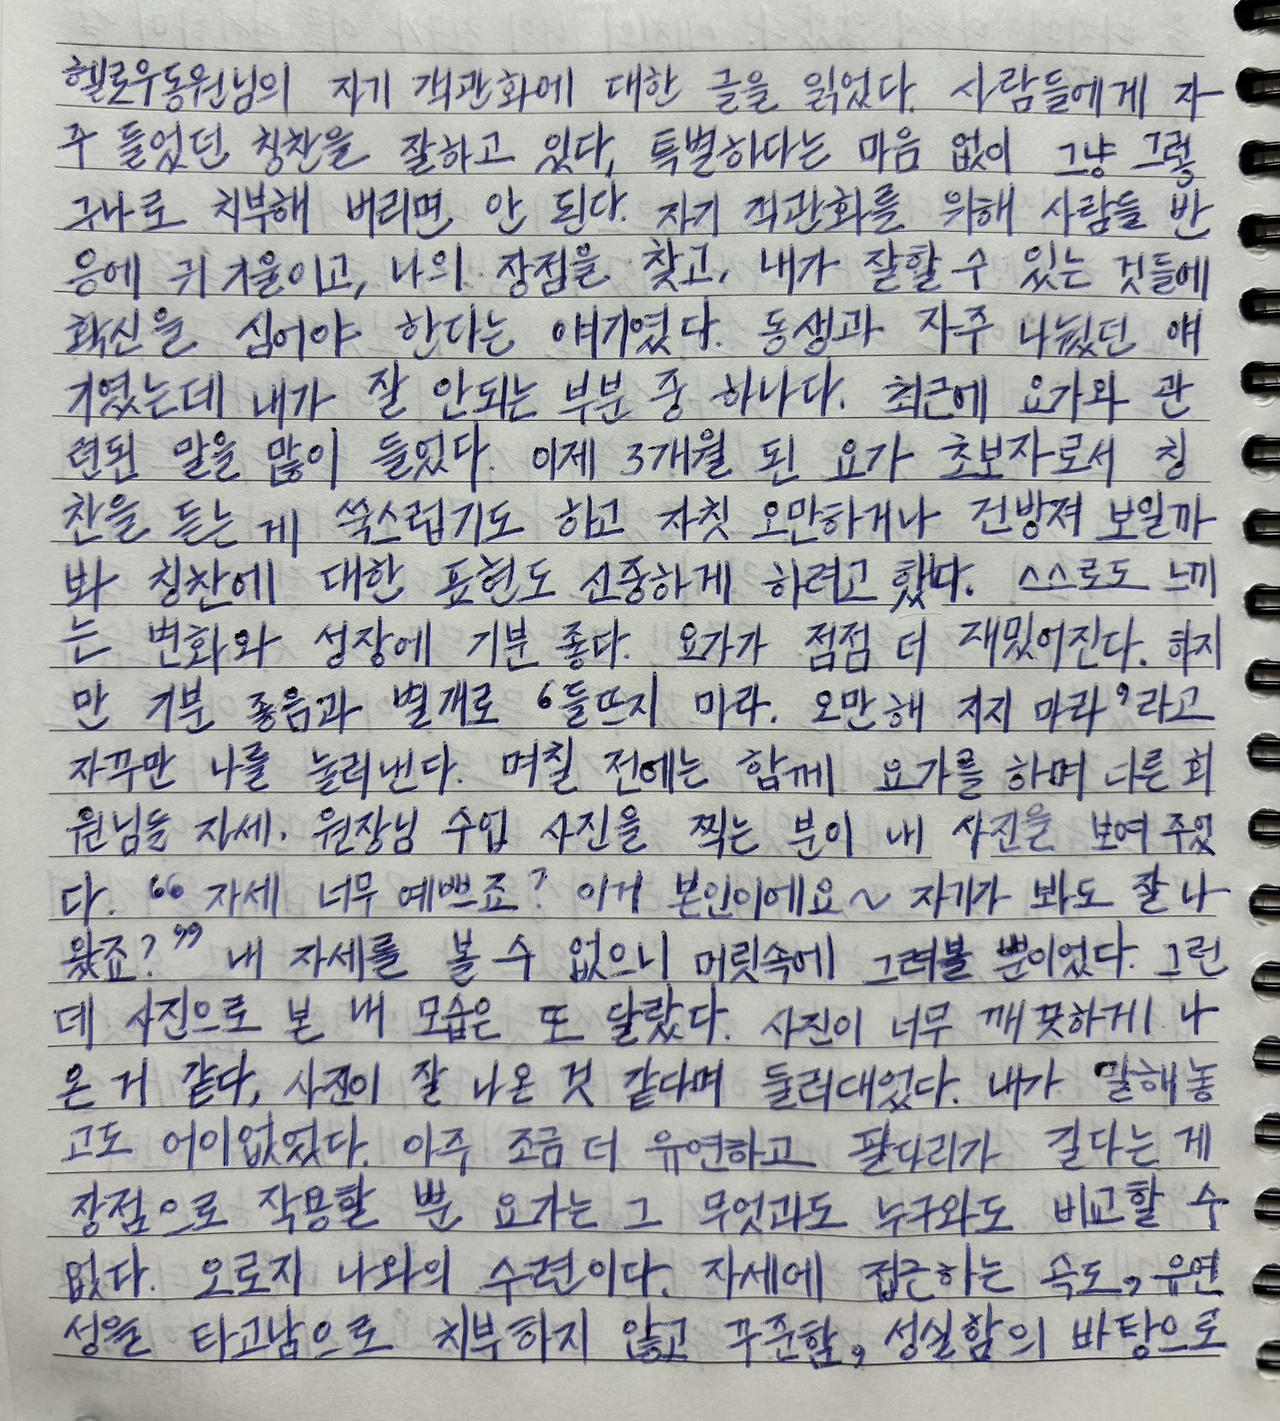 헬로우동원님의 자기 객관화에 대한 글을 읽었다. 사람들에게 자
주 들었던 칭찬을 잘하고 있다, 특별하다는 마음 없이 그냥 그렇
구나로 치부해 버리면 안 된다. 자기 객관화를 위해 사람들 반
응에 귀 기울이고, 나의 장점을 찾고, 내가 잘할 수 있는 것들에
확신을 심어야 한다는 얘기였다. 동생과 자주 나눴던 얘
기였는데 내가 잘 안되는 부분 중 하나다. 최근에 요가와 관
련된 말을 많이 들었다. 이제 3개월 된 요가 초보자로서 칭
찬을 듣는 게 쑥스럽기도 하고 자칫 오만하거나 건방져 보일까
봐 칭찬에 대한 표현도 신중하게 하려고 했다. 스스로도 느끼
는 변화와 성장에 기분 좋다. 요가가 점점 더 재밌어진다. 하지
만 기분 좋음과 별개로 '들뜨지 마라. 오만해 지지 마라'라고
자꾸만 나를 눌러낸다. 며칠 전에는 함께 요가를 하며 다른 회
원님들 자세. 원장님 수업 사진을 찍는 분이 내 사진을 보여주었
다. "자세 너무 예쁘죠? 이거 본인이에요~ 자기가 봐도 잘 나
왔죠?" 내 자세를 볼 수 없으니 머릿속에 그려볼 뿐이었다. 그런
데 사진으로 본 내 모습은 또 달랐다. 사진이 너무 깨끗하게 나
온 거 같다, 사진이 잘 나온 것 같다며 둘러대었다. 내가 말해놓
고도 어이없었다. 아주 조금 더 유연하고 팔다리가 길다는 게
장점으로 작용할 뿐 요가는 그 무엇과도 누구와도 비교할 수
없다. 오로지 나와의 수련이다. 자세에 접근하는 속도, 유연
성을 타고남으로 치부하지 않고 꾸준함, 성실함의 바탕으로